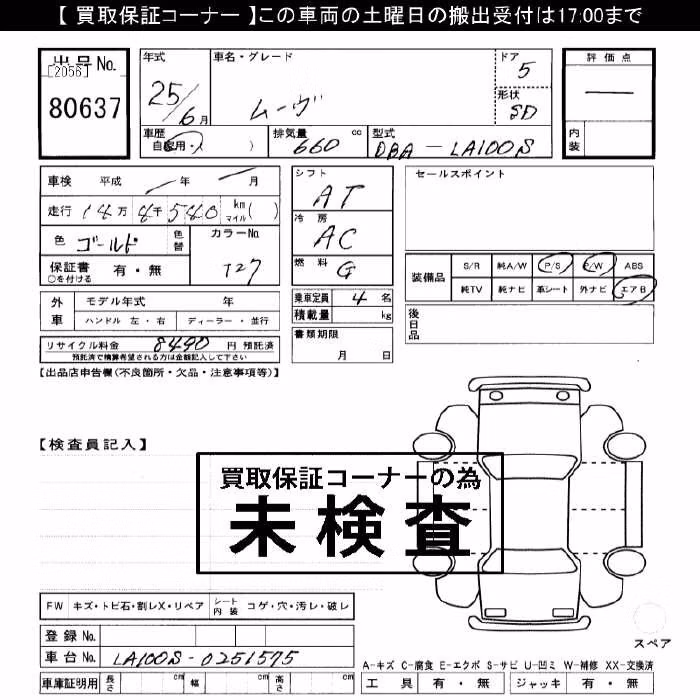 【 買取保証コーナー 】この車両の土曜日の搬出受付は17:00まで
出品No. [2056] 80637
年式 25/6月
車名・グレード ムーヴ
ドア 5
形状 5D
評価点 —
内装
車歴 自家用・( )
排気量 660 cc
型式 DBA-LA100S
車検 平成 年 月
走行 14万8千540 km マイル( )
色 ゴールド 色替 カラーNo. T27
保証書 有・無
○を付ける
シフト AT
冷房 AC
燃料 G
乗車定員 4 名
積載量 kg
書類期限
月 日
セールスポイント
装備品 S/R 純A/W P/S P/W ABS
純TV 純ナビ 革シート 外ナビ エアB
後日品
外車 モデル年式 年
ハンドル 左・右 ディーラー・並行
リサイクル料金 8490 円 預託済
預託済で精算希望される方は金額記入して下さい
【出品店申告欄(不良箇所・欠品・注意事項等)】
【検査員記入】
買取保証コーナーの為
未検査
FW キズ・トビ石・割レX・リペア シート内装 コゲ・穴・汚レ・破レ
登録No.
車台No. LA100S-0251575
車庫証明用 長さ cm 幅 cm 高さ cm
スペア
A-キズ C-腐食 E-エクボ S-サビ U-凹ミ W-補修 XX-交換済
工具 有・無 ジャッキ 有・無